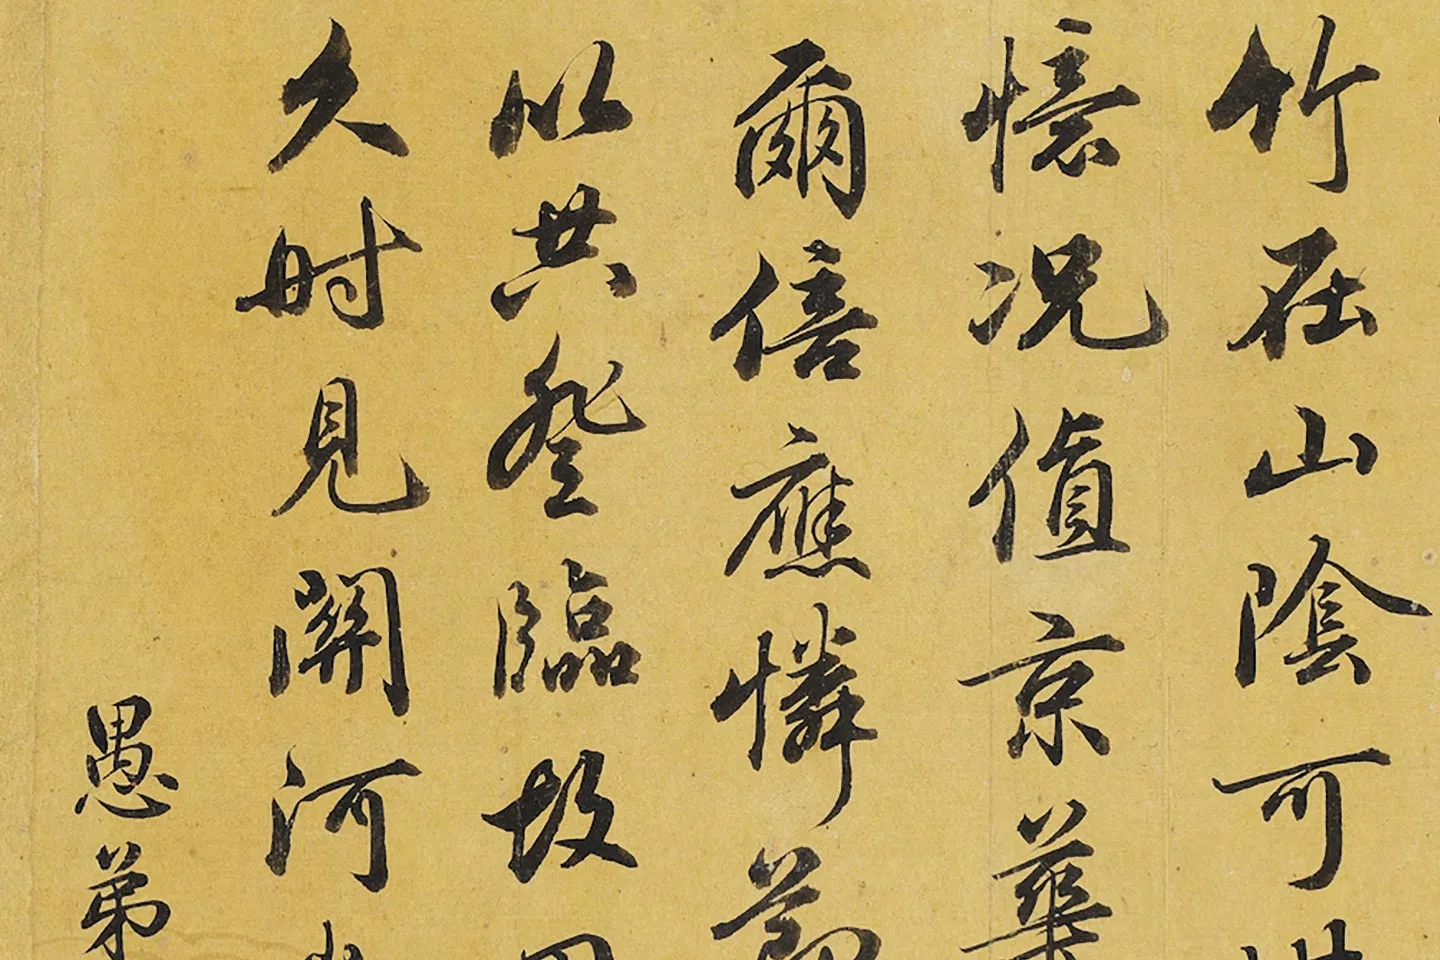 竹在山陰可
憶況值京華
爾倍應憐節
以共登臨故
久时見關河
愚弟